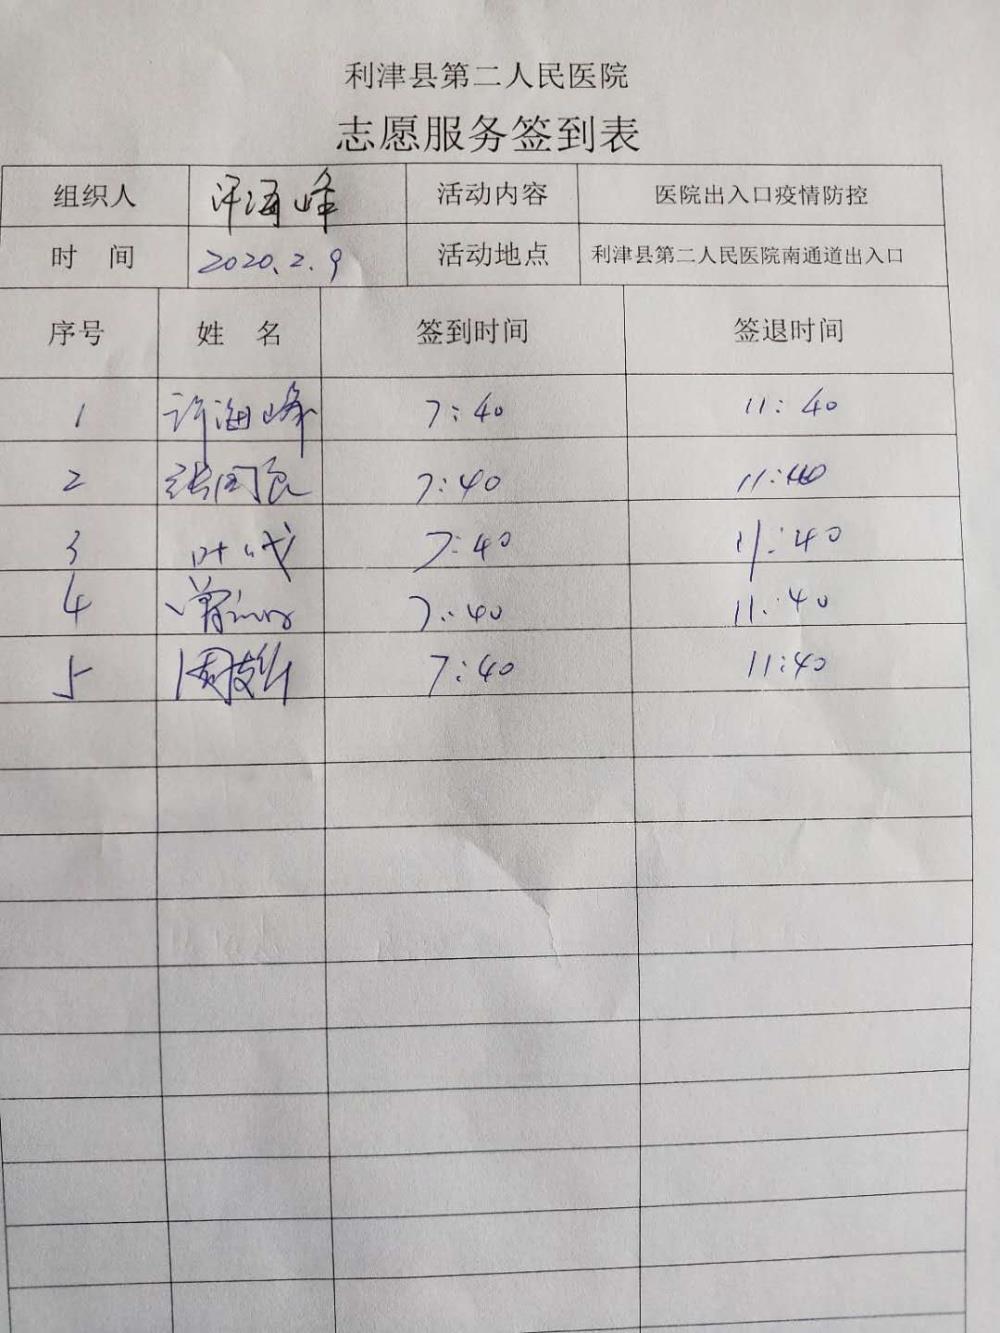 利津县第二人民医院
志愿服务签到表
组织人 许海峰 活动内容 医院出入口疫情防控
时 间 2020.2.9 活动地点 利津县第二人民医院南通道出入口
序号 姓 名 签到时间 签退时间
1 许海峰 7:40 11:40
2 张国良 7:40 11:40
3 7:40 11:40
4 7:40 11:40
5 7:40 11:40